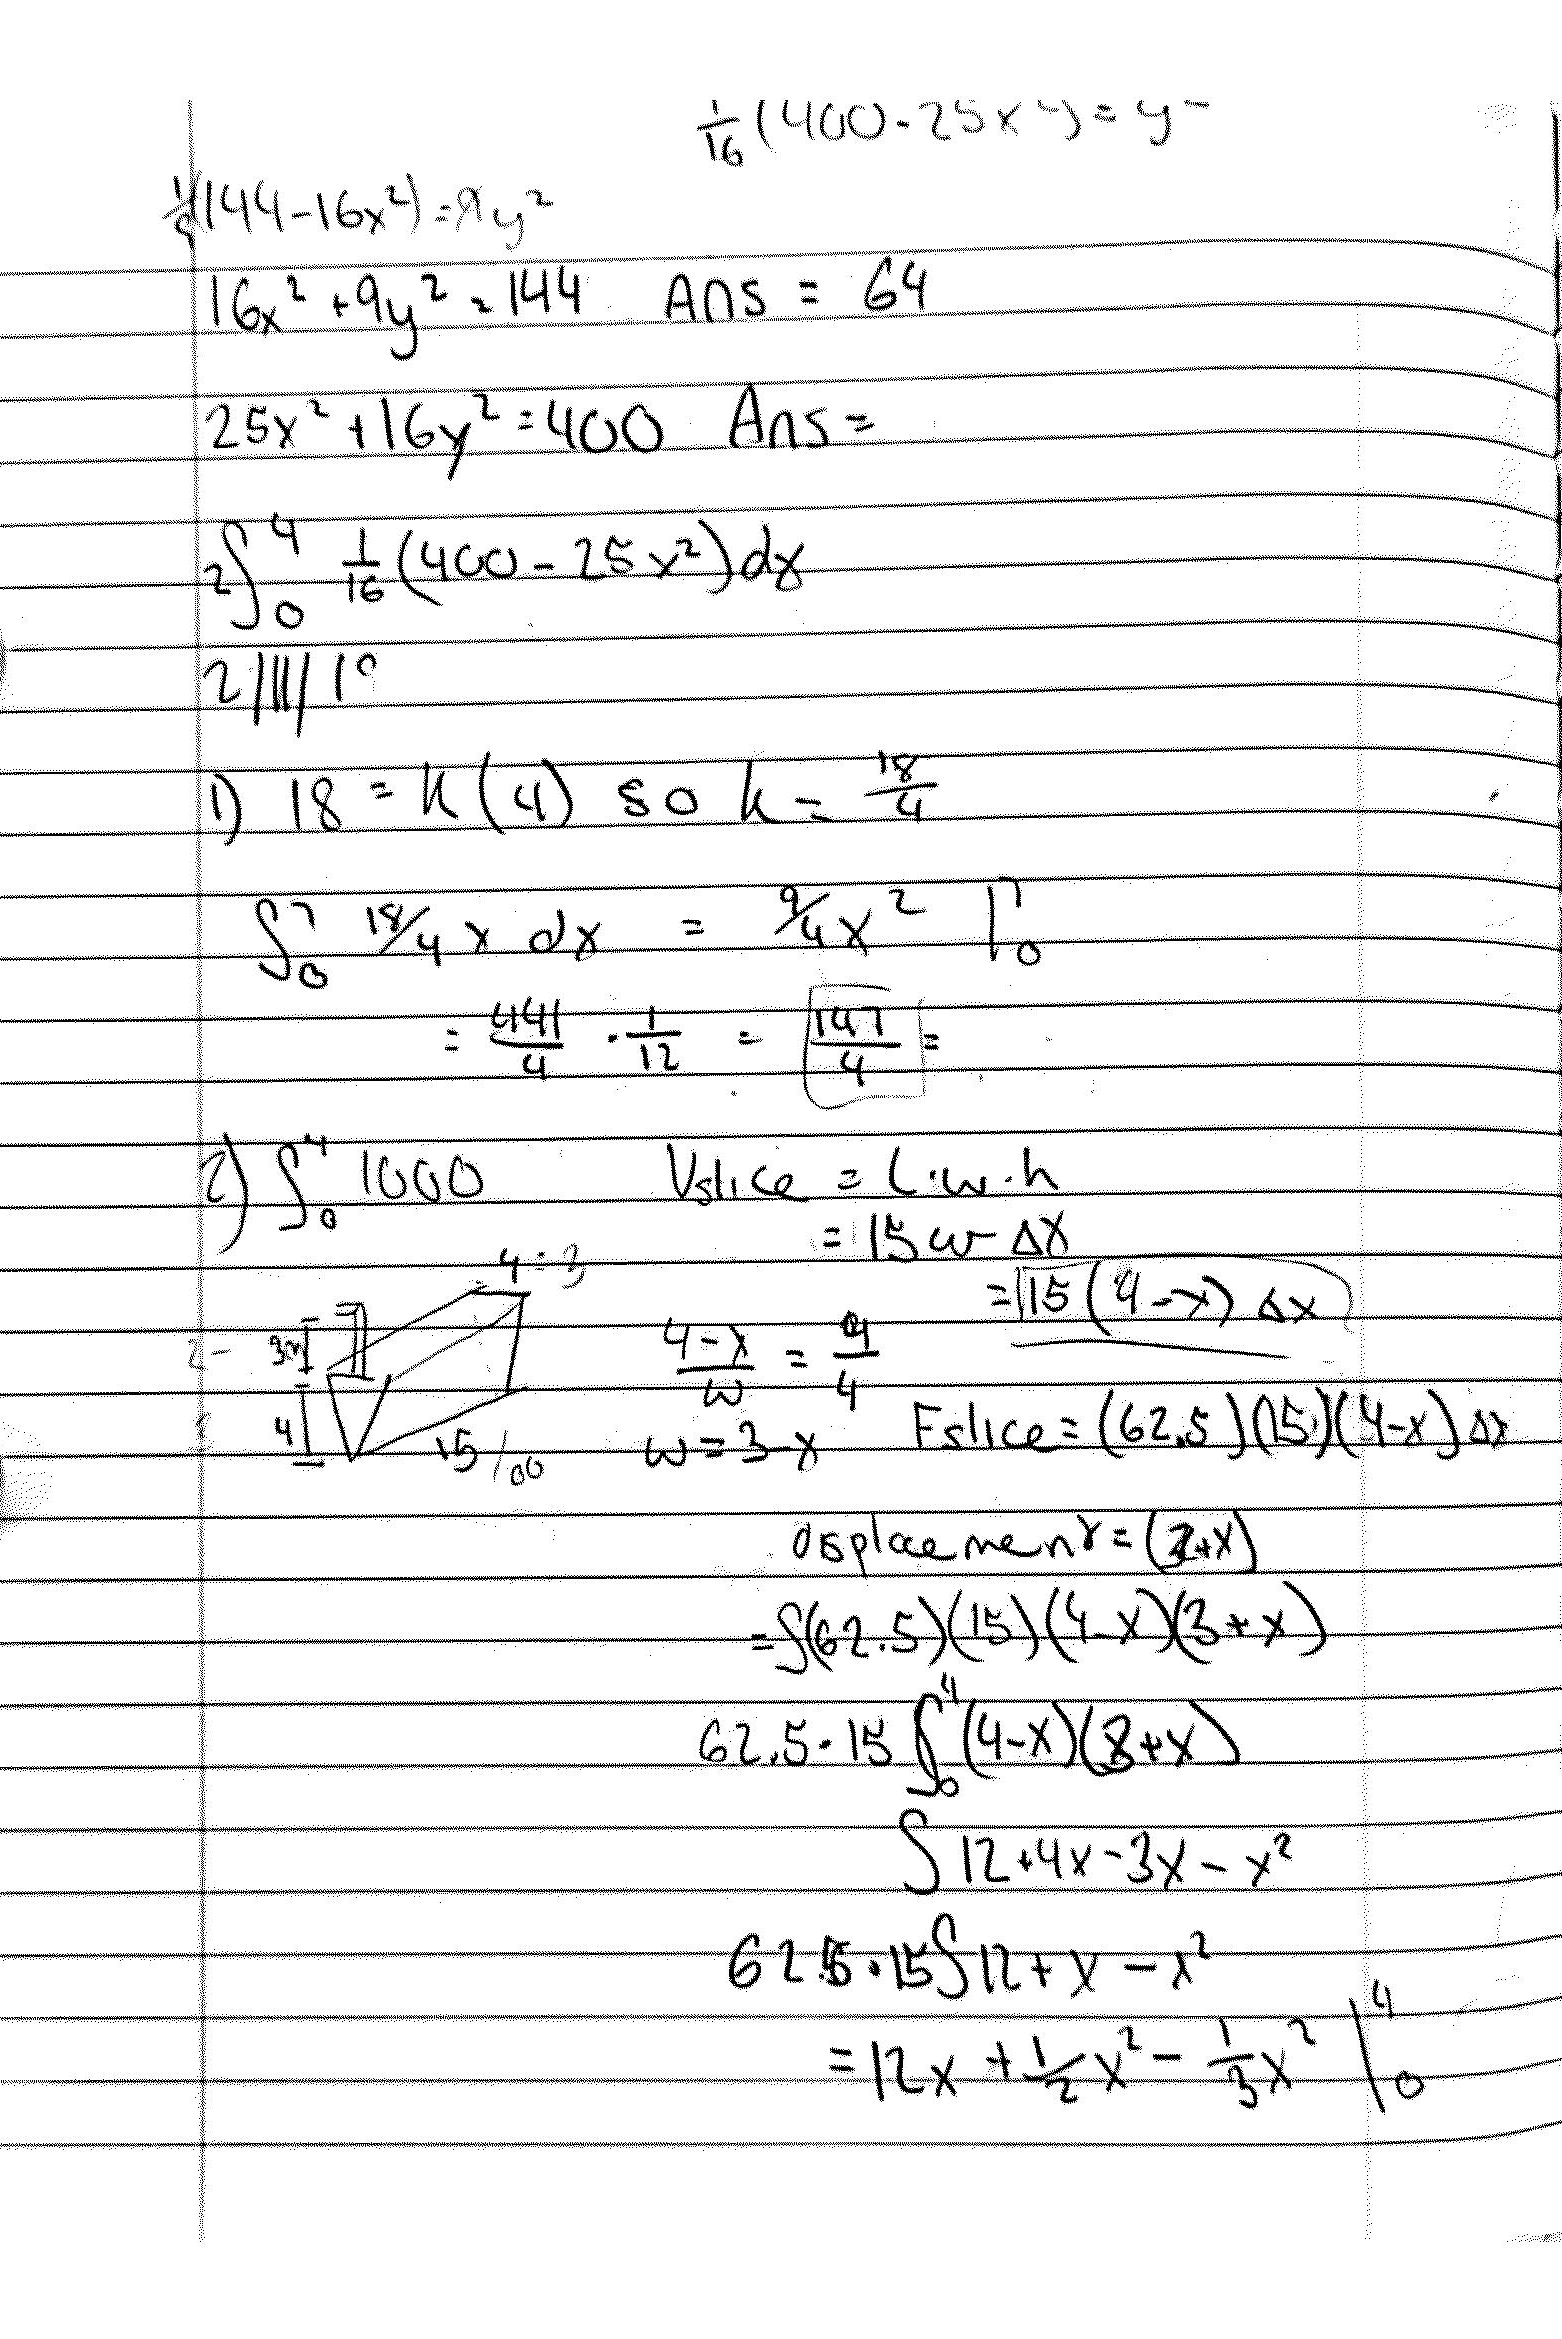 1/16 (400 - 25x²) = y²
(144 - 16x²) = 9y²
16x² + 9y² = 144 Ans = 64
25x² + 16y² = 400 Ans =
2∫₀⁴ 1/16 (400 - 25x²) dx
1) 18 = k(4) so k = 18/4
∫₀⁷ 18/4 x dx = 9/4 x² |₀⁷
= 441/4 · 1/12 = 147/4 =
2) ∫₀⁴ 1000 Vslice = L·w·h
= 15 w Δx
= 15(4-x) Δx
3m
4
15
(4-x)/w = 4/4
w = 3-x Fslice = (62.5)(15)(4-x) Δx
Displacement = (3+x)
= ∫(62.5)(15)(4-x)(3+x)
62.5 · 15 ∫₀⁴ (4-x)(3+x)
∫ 12 + 4x - 3x - x²
62.5 · 15 ∫ 12 + x - x²
= 12x + 1/2 x² - 1/3 x² |₀⁴